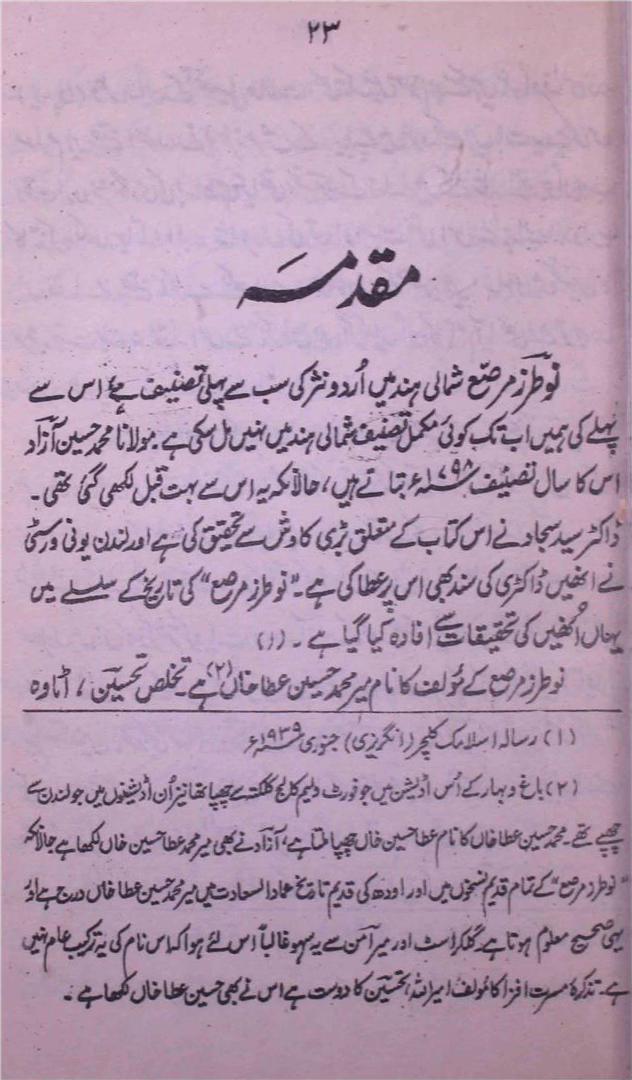 ۲۳
مقدمہ
نوطرز مرصّع شمالی ہند میں اُردو نثر کی سب سے پہلی تصنیف ہے، اس سے
پہلے کی ہمیں اب تک کوئی مکمل تصنیف شمالی ہند میں نہیں مل سکی ہے۔ مولانا محمد حسین آزاد
اس کا سال تصنیف ۱۷۹۸ء بتاتے ہیں، حالانکہ یہ اس سے بہت قبل لکھی گئی تھی۔
ڈاکٹر سید سجاد نے اس کتاب کے متعلق بڑی کاوش سے تحقیق کی ہے اور لندن یونی ورسٹی
نے انھیں ڈاکٹری کی سند بھی اس پر عطا کی ہے۔ "نوطرز مرصع" کی تاریخ کے سلسلے میں
یہاں اُنھیں کی تحقیقات سے افادہ کیا گیا ہے۔ (۱)
نوطرز مرصع کے مؤلف کا نام میر محمد حسین عطا خاں (۲) ہے تخلص تحسین، اٹاوہ
(۱) رسالہ اسلامک کلچر (انگریزی) جنوری ۱۹۳۹ء
(۲) باغ و بہار کے اُس اڈیشن میں جو فورٹ ولیم کالج کلکتہ سے چھپا تھا نیز اُن اڈیشنوں میں جو لندن سے
چھپے تھے۔ محمد حسین عطا خاں کا نام عطا حسین خاں چھپا ملتا ہے، آزاد نے بھی میر محمد عطا حسین خاں لکھا ہے حالانکہ
"نوطرز مرصع" کے تمام قدیم نسخوں میں اور اودھ کی قدیم تاریخ عماد السعادت میں میر محمد حسین عطا خاں درج ہے اور
یہی صحیح معلوم ہوتا ہے۔ گلکرسٹ اور میر امن سے یہ سہو غالباً اس لئے ہوا کہ اس نام کی یہ ترکیب عام نہیں
ہے۔ تذکرۂ مسرت افزا کا مؤلف امیر اللہ، تحسین کا دوست ہے اس نے بھی حسین عطا خاں لکھا ہے۔